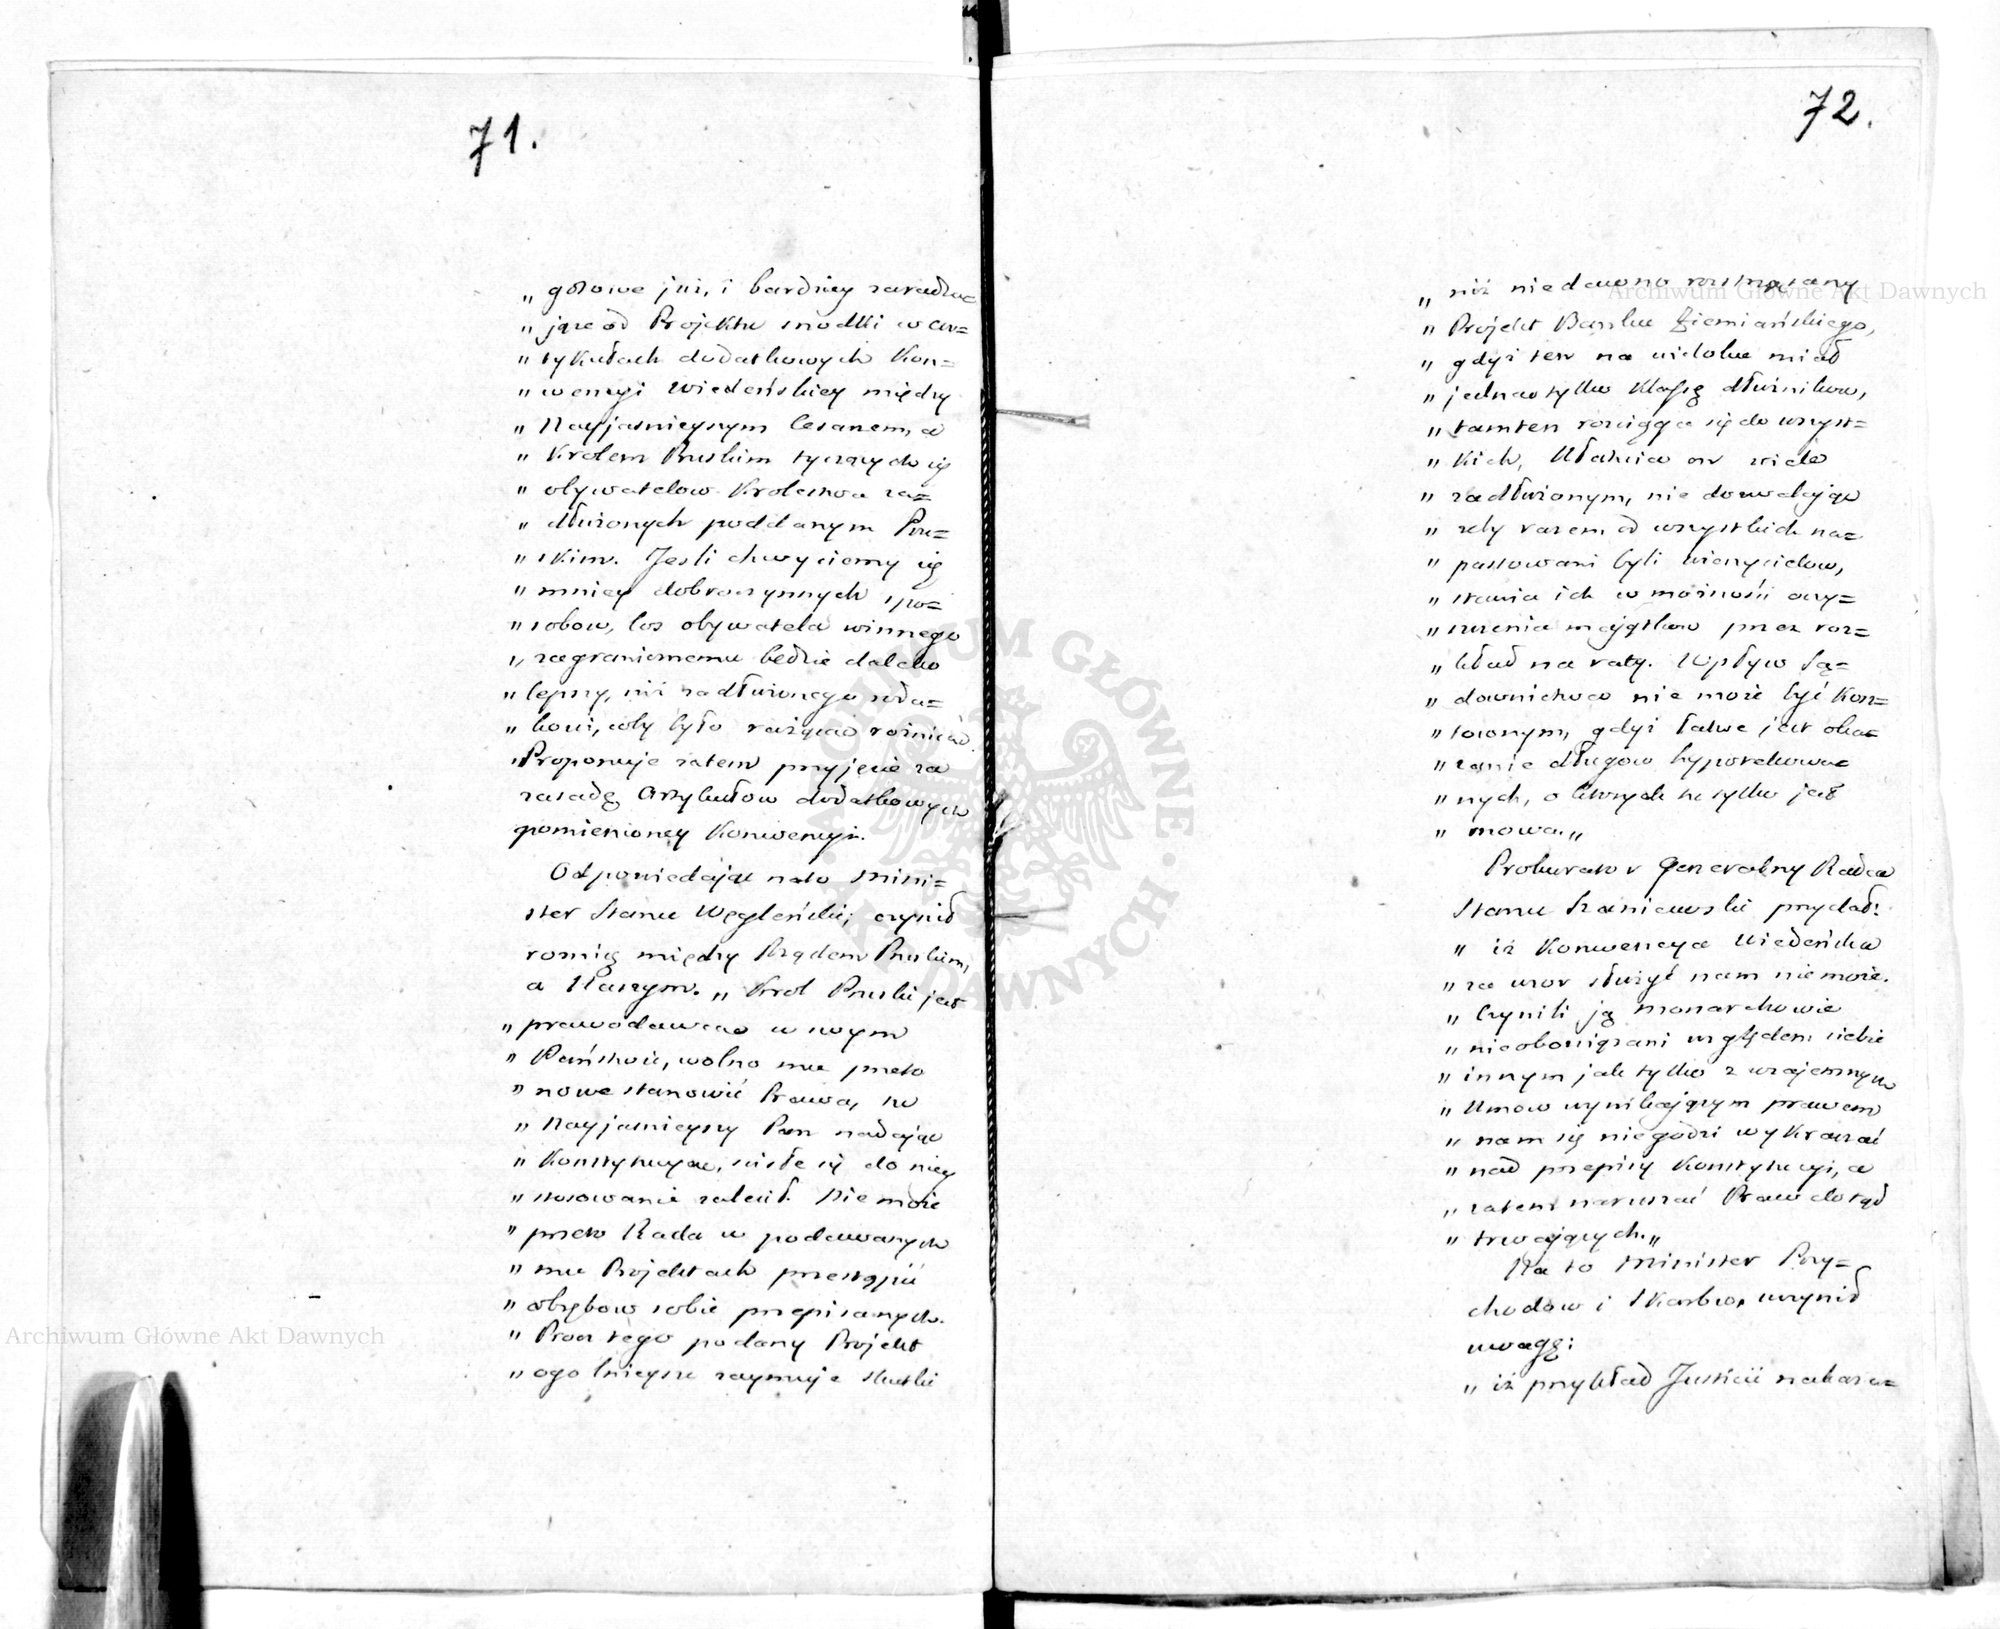 71.
„ gotowe już, i bardziey zaradza=
„ jące od Projektu srodki w ar=
„ tykułach dodatkowych Kon=
„ wencyi Wiedeńskiey między
„ Nayjasnieyszym Cesarzem, a
„ Krolem Pruskim tyczących się
„ obywatelow Krolestwa za=
„ dłużonych poddanym Pru=
„ skim. Jesli chwyciemy się
„ mniey dobroczynnych spo=
„ sobow, los obywatela winnego
„ zagranicznemu będzie daleko
„ lepszy, niż zadłużonego roda=
„ kowi, coby było rażącą rożnicą.
„ Proponuje zatem przyjęcie za
zasadę Artykułow dodatkowych
pomienioney Konwencyi.
Odpowiedając nato Mini=
ster Stanu Węgleński, czynił
roznię między Rządem Pruskim,
a Naszym. „ Krol Pruski jest
„ prawodawcą w swym
„ Państwie, wolno mu przeto
„ nowe stanowić Prawa, tu
„ Nayjasnieyszy Pan nadając
„ Konstytucyą, scisłe się do niey
„ stosowanie zalecił. Nie może
„ przeto Rada w podawanych
„ mu Projektach przestąpić
„ obrębow sobie przepisanych.
„ Procz tego podany Projekt
„ ogolnieysze zaymuje skutki
72.
„ niż niedawno roztrząsany
„ Projekt Banku Ziemiańskiego,
„ gdyż ten na widoku miał
„ jedną tylko klassę dłużnikow,
„ tamten rozciąga się do wszyst=
„ kich, Ułatwia on wiele
„ zadłużonym, nie dozwalając
„ żeby razem od wszystkich na=
„ pastowani byli wierzycielow,
„ stawia ich w możności oczy=
„ szczenia majątkow przez roz=
„ kład na raty. Wpływ Są=
„ downictwa nie może być Kosz=
„ townym, gdyż łatwe jest oka=
„ zanie długow hypotekowa=
„ nych, o ktorych tu tylko jest
„ mowa. „
Prokurator Generalny Radca
Stanu Szaniawski przydał:
„ iż Konwencya Wiedeńska
„ za wzor służyć nam niemoże.
„ Czynili ją Monarchowie
„ nieobowiązani względem siebie
„ innym jak tylko z wzajemnych
„ Umow wynikającym prawem
„ nam się niegodzi wykraczać
„ nad przepisy Konstytucyi, a
„ zatem naruszać Praw dotąd
„ trwających. „
Na to Minister Przy=
chodow i Skarbu, uczynił
uwagę:
„ iż przykład Justicii nakaza=
Archiwum Główne Akt Dawnych
Archiwum Główne Akt Dawnych
ARCHIWUM GŁÓWNE AKT DAWNYCH